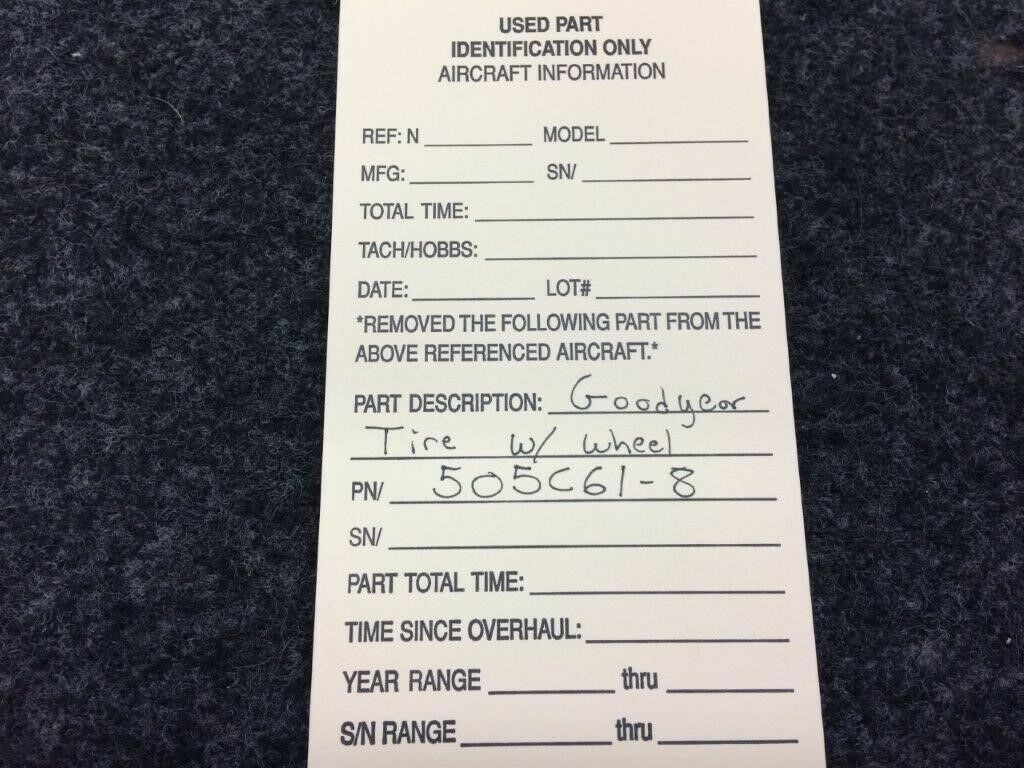 USED PART
IDENTIFICATION ONLY
AIRCRAFT INFORMATION
REF: N MODEL
MFG: SN/
TOTAL TIME:
TACH/HOBBS:
DATE: LOT#
*REMOVED THE FOLLOWING PART FROM THE
ABOVE REFERENCED AIRCRAFT.*
PART DESCRIPTION: Goodyear
Tire w/ wheel
PN/ 505C61-8
SN/
PART TOTAL TIME:
TIME SINCE OVERHAUL:
YEAR RANGE thru
S/N RANGE thru